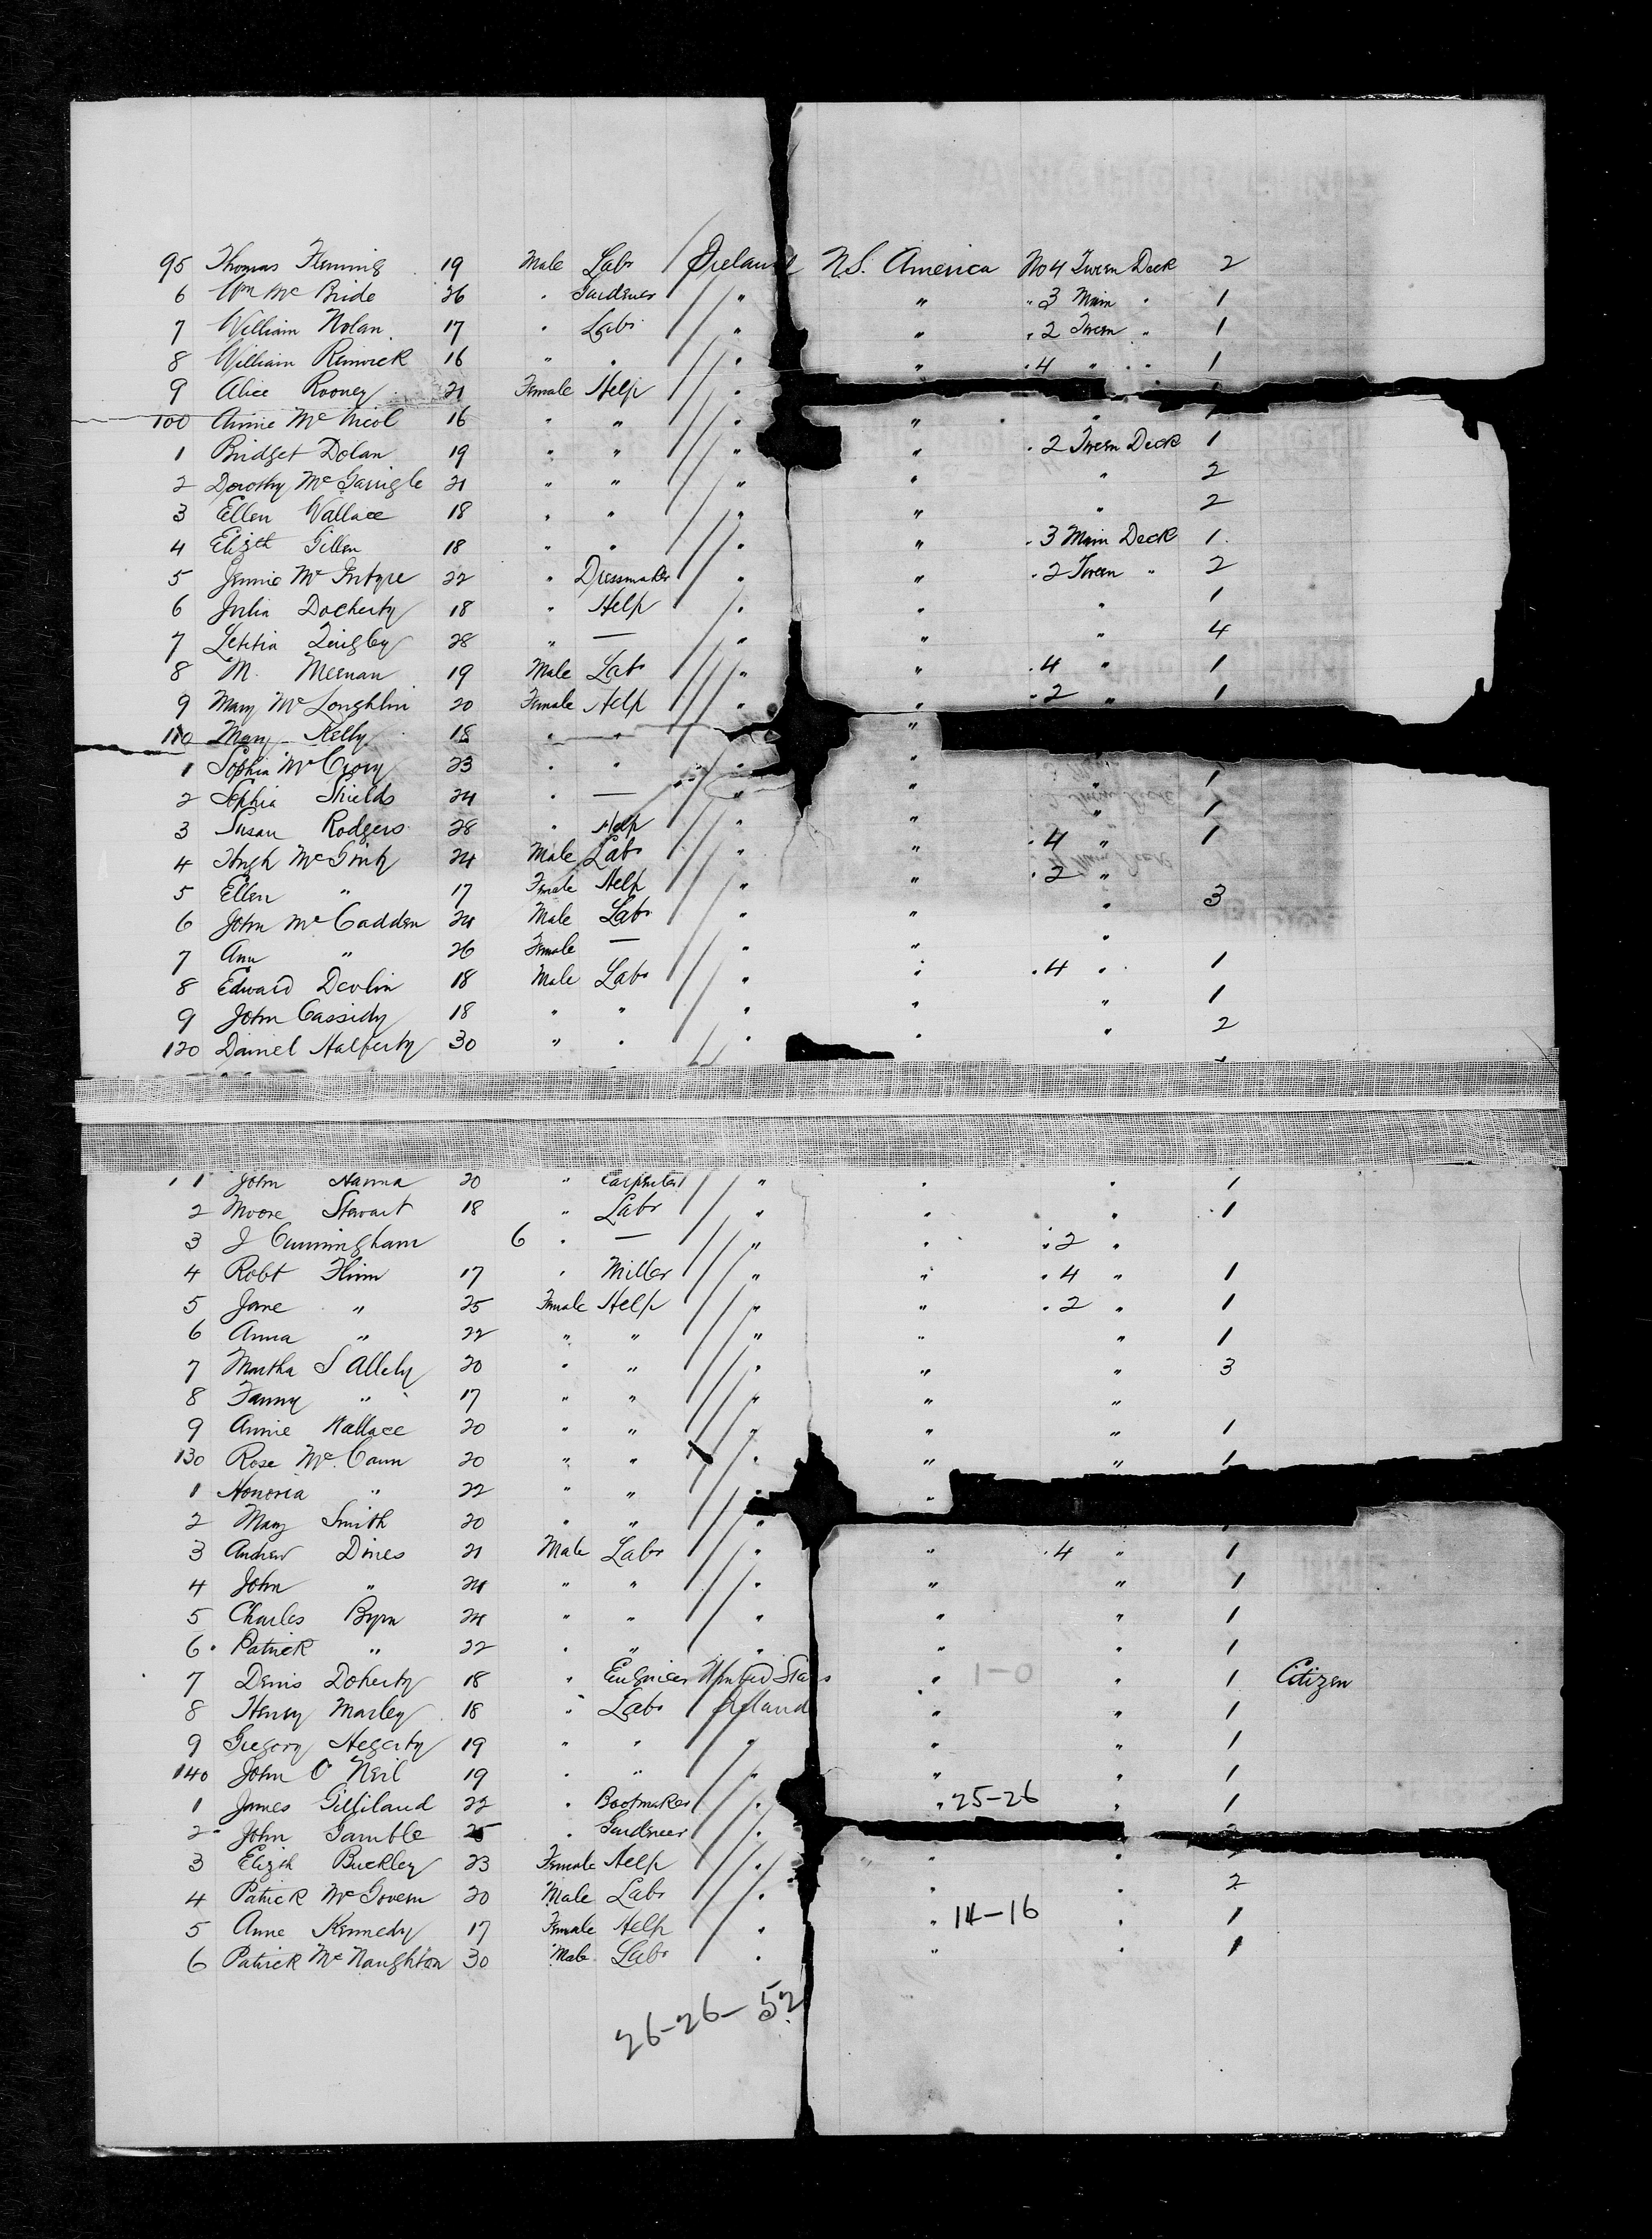 95 Thomas Fleming 19 Male Labr Ireland N.S. America No 4 Tween Deck 2
6 Wm Mc Bride 26 " Gardener " " " 3 Main " 1
7 William Nolan 17 " Labr " " " 2 Tween " 1
8 William Renwick 16 " " " " " 4 " " 1
9 Alice Rooney 21 Female Help "
100 Annie Mc Nicol 16 " " " " "
1 Bridget Dolan 19 " " " " " 2 Tween Deck 1
2 Dorothy Mc Garrigle 21 " " " " " 2
3 Ellen Wallace 18 " " " " " 2
4 Elizth Gillen 18 " " " " " 3 Main Deck 1
5 Jennie Mc Intyre 22 " Dressmaker " " " 2 Tween " 2
6 Julia Docherty 18 " Help " " " 1
7 Letitia Quigley 28 " — " " " 4
8 M. Meenan 19 Male Labr " " " 4 " 1
9 Mary Mc Loughlin 20 Female Help " " " 2 " 1
110 Mary Kelly 18 " " " "
1 Sophia Mc Crory 23 " " " "
2 Sophia Shields 24 " — " " " 1
3 Susan Rodgers 28 " Help " " " 1
4 Hugh Mc Ginty 24 Male Labr " " " 4 " 1
5 Ellen " 17 Female Help " " " 2 "
6 John Mc Cadden 24 Male Labr " " " 3
7 Ann " 26 Female — " " "
8 Edward Devlin 18 Male Labr " " " 4 " 1
9 John Cassidy 18 " " " " " 1
120 Daniel Halferty 30 " " " " " 2
1 John Hanna 20 " Carpenter " " " 1
2 Moore Stewart 18 " Labr " " " 1
3 J Cunningham 6 " — " " " 2 "
4 Robt Flinn 17 " Miller " " " 4 " 1
5 Jane " 25 Female Help " " " 2 " 1
6 Anna " 22 " " " " " 1
7 Martha S Allely 20 " " " " " 3
8 Fanny " 17 " " " " "
9 Annie Wallace 20 " " " " " 1
130 Rose Mc Cann 20 " " " " " 1
1 Honoria " 22 " " " "
2 Mary Smith 20 " " "
3 Andrew Dines 21 Male Labr " " " 4 " 1
4 John " 24 " " " " " 1
5 Charles Byrn 24 " " " " " 1
6 Patrick " 22 " " " " " 1
7 Denis Doherty 18 " Engineer United States " 1-0 " 1 Citizen
8 Henry Marley 18 " Labr Ireland " " 1
9 Gregory Hegarty 19 " " " " " 1
140 John O' Neil 19 " " " " " 1
1 James Gilliland 22 " Bootmaker " " 25-26 " 1
2 John Gamble 25 " Gardener "
3 Elizth Buckley 23 Female Help " " "
4 Patrick Mc Govern 20 Male Labr " " " 2
5 Anne Kennedy 17 Female Help " " 14-16 " 1
6 Patrick Mc Naughton 30 Male Labr " " " 1
26-26-52